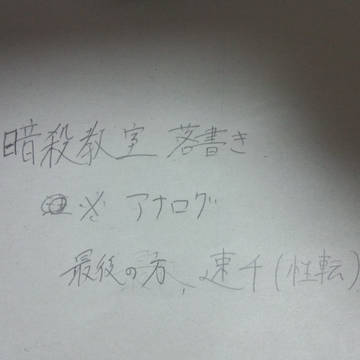 暗殺教室 落書き
※ アナログ
最後の方、速千(性転)